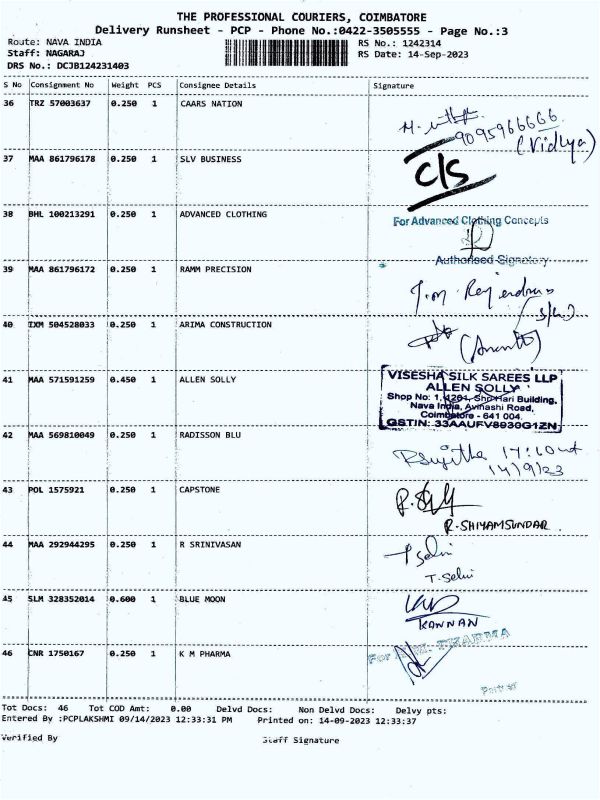 THE PROFESSIONAL COURIERS, COIMBATORE
Delivery Runsheet - PCP - Phone No.:0422-3505555 - Page No.:3
Route: NAVA INDIA RS No.: 1242314
Staff: NAGARAJ RS Date: 14-Sep-2023
DRS No.: DCJB124231403
S No Consignment No Weight PCS Consignee Details Signature
36 TRZ 57003637 0.250 1 CAARS NATION
9095966666
(Vidhya)
37 MAA 861796178 0.250 1 SLV BUSINESS
C/S
38 BHL 100213291 0.250 1 ADVANCED CLOTHING
For Advanced Clothing Concepts
Authorised Signatory
39 MAA 861796172 0.250 1 RAMM PRECISION
40 IXM 504528033 0.250 1 ARIMA CONSTRUCTION
41 MAA 571591259 0.450 1 ALLEN SOLLY
VISESHA SILK SAREES LLP
ALLEN SOLLY
Shop No: 1, Shri Hari Building,
Nava India, Avinashi Road,
Coimbatore - 641 004.
GSTIN: 33AAUFV8930G1ZN
42 MAA 569810049 0.250 1 RADISSON BLU
14/9/23
43 POL 1575921 0.250 1 CAPSTONE
R.SHIYAMSUNDAR.
44 MAA 292944295 0.250 1 R SRINIVASAN
T. Selvi
45 SLM 328352014 0.600 1 BLUE MOON
KANNAN
46 CNR 1750167 0.250 1 K M PHARMA
For PHARMA
Tot Docs: 46 Tot COD Amt: 0.00 Delvd Docs: Non Delvd Docs: Delvy pts:
Entered By :PCPLAKSHMI 09/14/2023 12:33:31 PM Printed on: 14-09-2023 12:33:37
Verified By Staff Signature